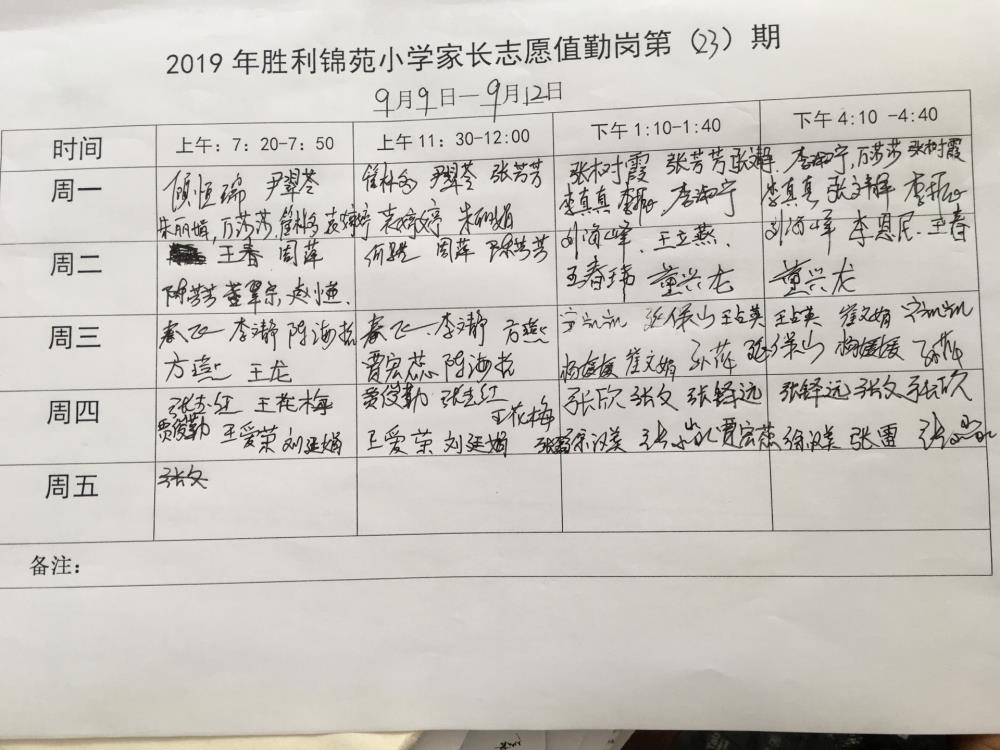 2019年胜利锦苑小学家长志愿值勤岗第（23）期
9月9日—9月12日
时间 上午：7：20-7：50 上午11：30-12:00 下午1:10-1:40 下午4:10 -4:40
周一 顾恒瑞 尹翠苓 尹翠苓 张芳芳 张树霞 张芳芳 李海宁, 万莎莎 张树霞
朱丽娟, 万莎莎, 袁婷婷 袁婷婷 朱丽娟 李真真 李海宁 李真真 张文静
周二 王春 周萍 周萍 陈芳芳 刘海峰、王立燕、 刘海峰 李恩民、王春
陈芳芳 董翠宗 赵小恒、 王春玮 董兴龙 董兴龙
周三 李文静 陈海松 李文静 方燕 张保山 王占英 王占英 崔文娟
方燕 王龙 贾宏蕊 陈海松 杨媛媛 崔文娟 孙萍 张保山 杨媛媛 孙萍
周四 张志红 王花梅 贾俊勤 张志红 王花梅 张欣 张文 张铎远 张铎远 张文 张欣
贾俊勤 王爱荣 刘延娟 王爱荣 刘延娟 徐汉美 贾宏蕊 徐汉美 张雷
周五 张文
备注：